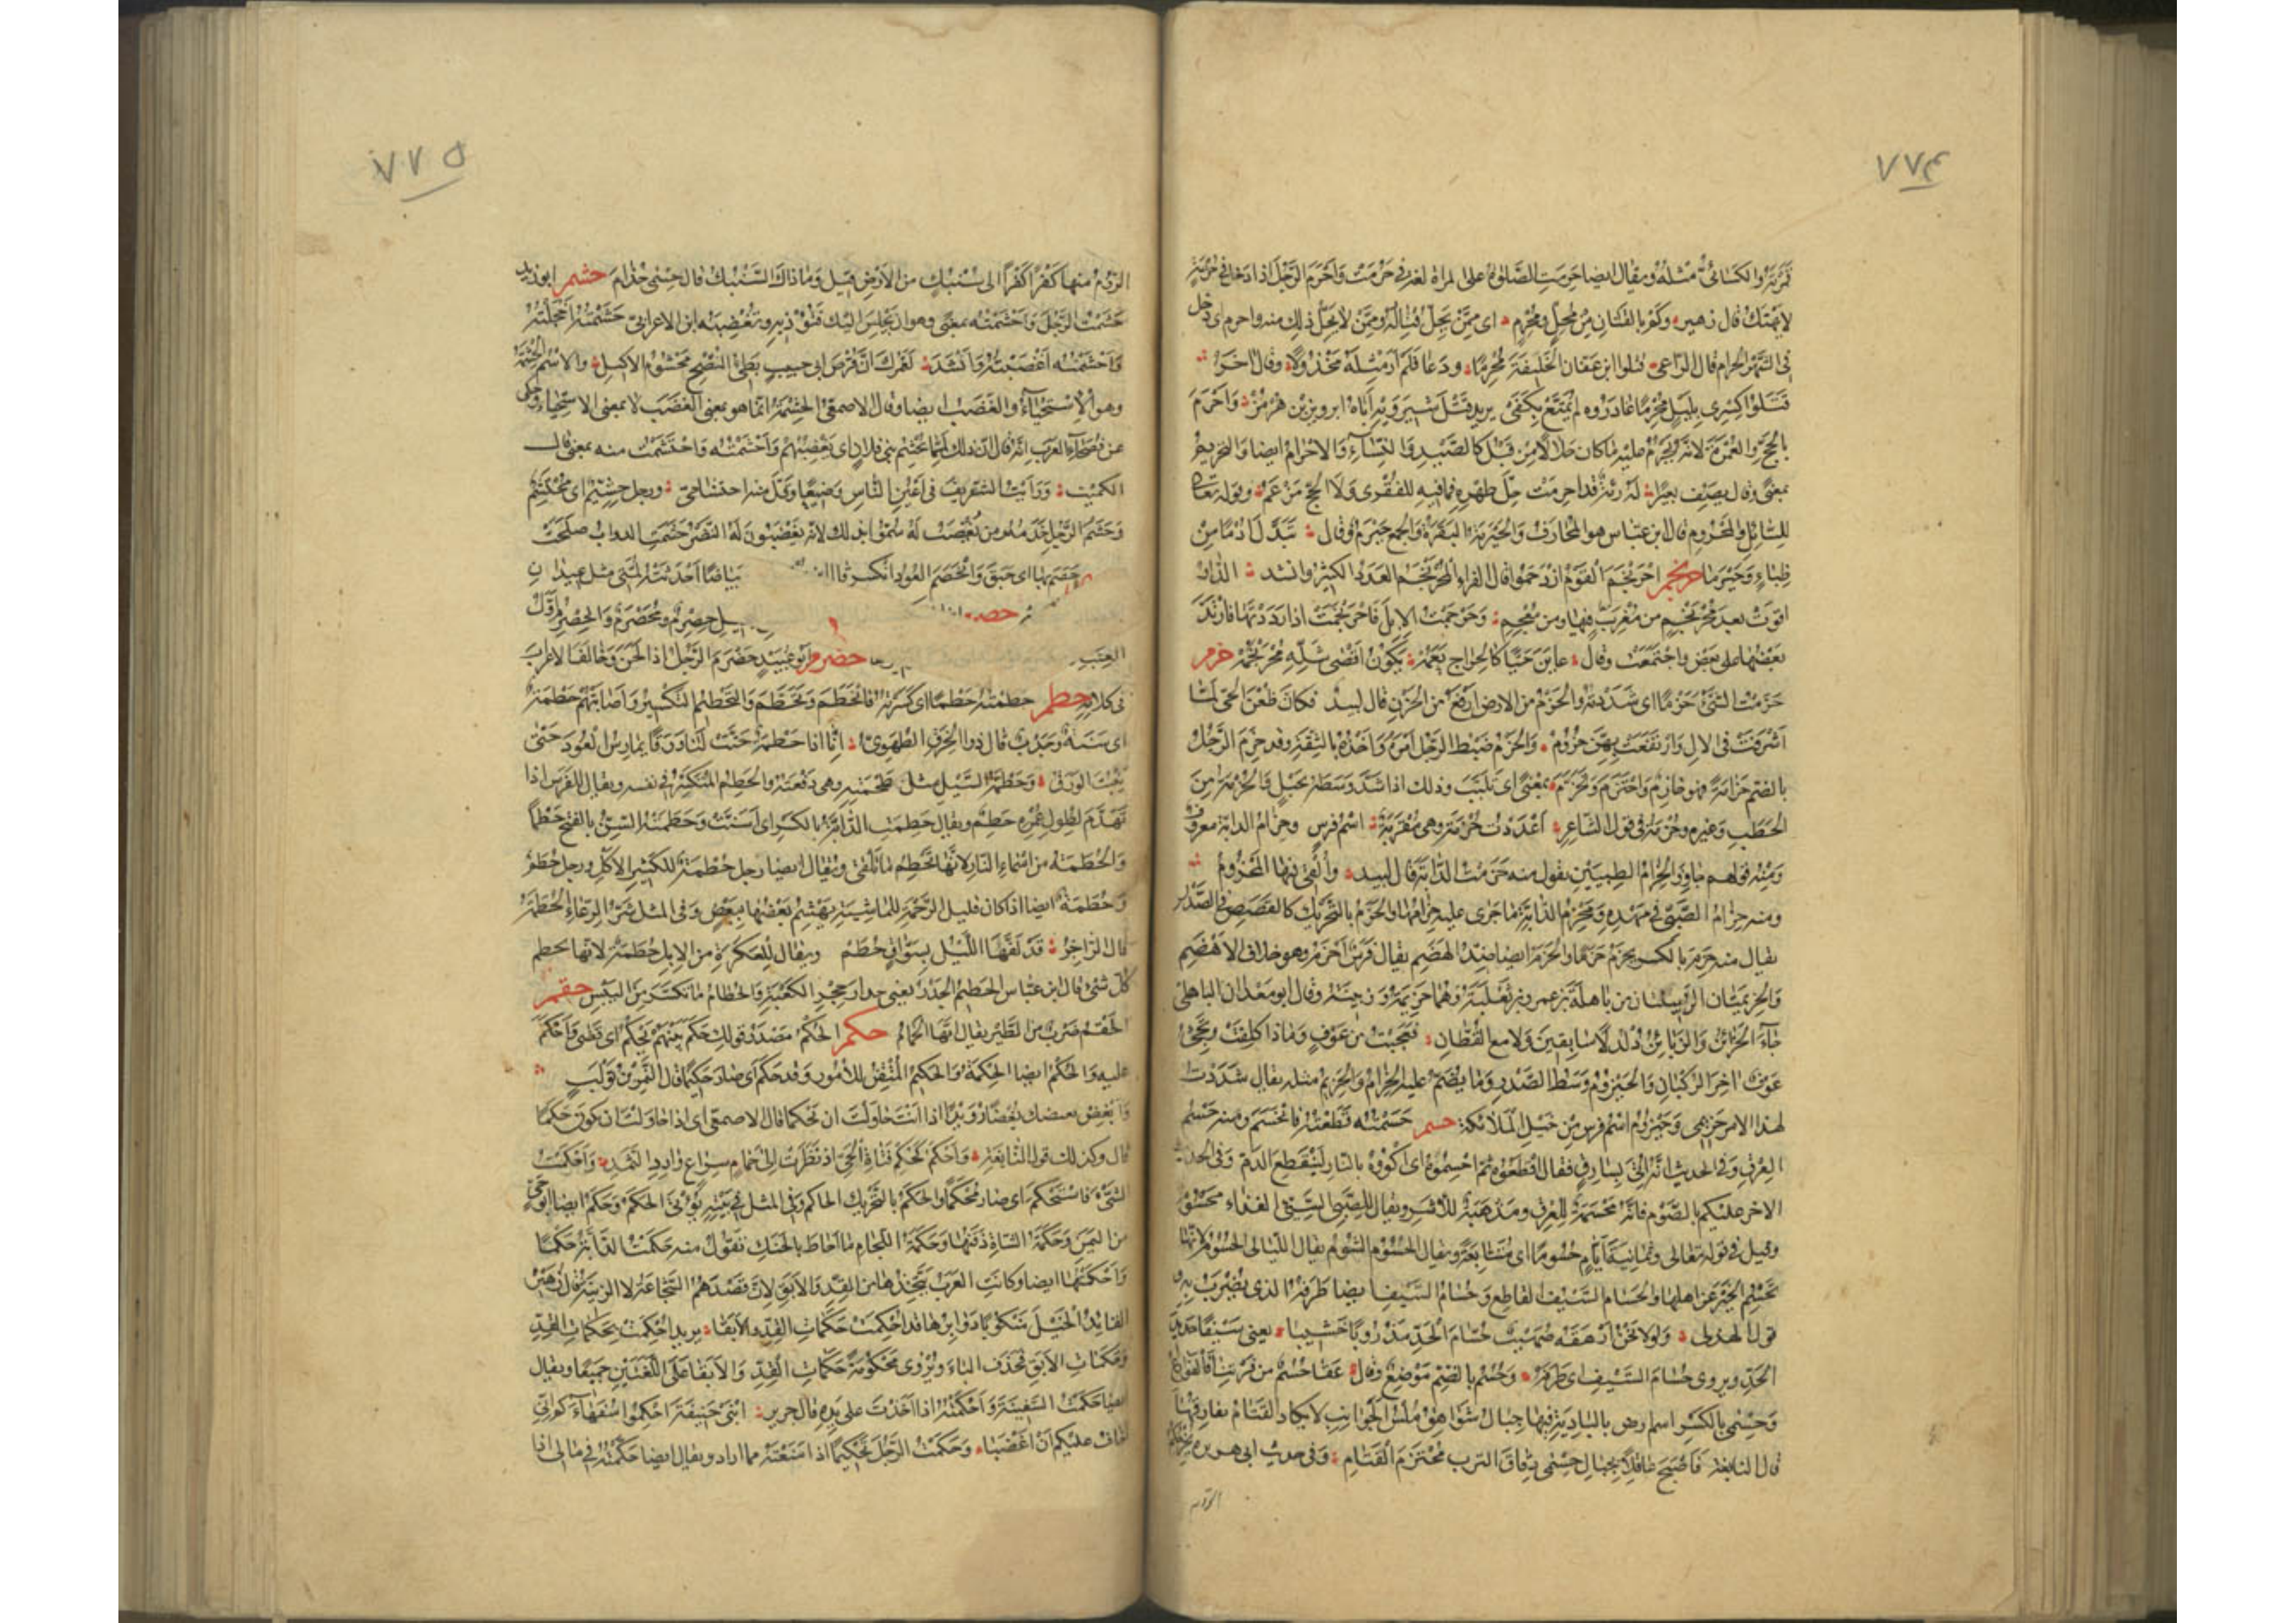 ٧٧٤
والكسائي مثله ويقال ايضا حرمت الصلوة على المراة لغة في حرمت واحرم الرجل اذا دخل في حرمة
لا تهتك قال زهير وكم بالقنان من محل ومحرم اى ممن يحل قتاله وممن لا يحل ذلك منه واحرم اى دخل
في الشهر الحرام قال الراعى قتلوا ابن عفان الخليفة محرما ودعا فلم ار مثله مخذولا وقال اخر
قتلوا كسرى بليل محرما غادروه لم يمتع بكفن يريد قتل شيرويه اباه ابرويز بن هرمز واحرم
بالحج والعمرة لانه يحرم عليه ما كان حلالا من قبل كالصيد والنساء والاحرام ايضا والتحريم
بمعنى وقال يصف بعيرا له رئة قد احرمت حل ظهره فما فيه للفقرى ولا الحج مزعم وقوله تعالى
للسائل والمحروم قال ابن عباس هو المحارف والحيرمة البقرة والجمع حيرم وقال تبدل ادما من
ظباء وحيرما حرجم احرنجم القوم ازدحموا قال الفراء المحرنجم العدد الكثير وانشد الدار
اقوت بعد محرنجم من معرب فيها ومن معجم وحرجمت الابل فاحرنجمت اذا رددتها فارتد
بعضها على بعض واجتمعت وقال عاين حيا كالحراج نعمه يكون اقصى شله محرنجمه حزم
حزمت الشئ حزما اى شددته والحزم من الارض ارفع من الحزن قال لبيد فكان ظعن الحى لما
اشرفت في الال وارتفعت بهن حزوم والحزم ضبط الرجل امره واخذه بالثقة وقد حزم الرجل
بالضم حزامة فهو حازم واحتزم وتحزم بمعنى اى تلبب وذلك اذا شد وسطه بحبل والحزمة من
الحطب وغيره وحزمة في قول الشاعر اعددت حزمة وهى مقربة اسم فرس وحزام الدابة معروف
ومنه قولهم جاوز الحزام الطبيين تقول منه حزمت الدابة قال لبيد والقى قتبها المحزوم
ومنه حزام الصبى في مهده ومحزم الدابة ما جرى عليه حزامها والحزم بالتحريك كالغصص في الصدر
يقال منه حزم بالكسر يحزم حزما والحزم ايضا ضد الهضم يقال فرس احزم وهو خلاف الاهضم
والحزيمتان الزبينتان من باهلة بن عمرو بن ثعلبة وهما حزيمة وزبينة وقال ابو معدان الباهلى
جاء الحزائم والزبائن دلدلا لا سابقين ولا مع القطان فعجبت من عوف وماذا كلفت وتجئ
عوف اخر الركبان والحيزوم وسط الصدر وما يضم عليه الحزام والحزيم مثله يقال شددت
لهذا الامر حزيمى وحيزوم اسم فرس من خيل الملائكة حسم حسمته قطعته فانحسم ومنه حسم
العرق وفي الحديث انه اتى بسارق فقال اقطعوه ثم احسموه اى اكووه بالنار لينقطع الدم وفي الحديث
الاخر عليكم بالصوم فانه محسمة للعرق ومذهبة للاشر ويقال للصبى السئ الغذاء محسوم
وقيل في قوله تعالى وثمانية ايام حسوما اى متتابعة ويقال الحسوم الشوم يقال الليالى الحسوم لانها
تحسم الخير عن اهلها والحسام السيف القاطع وحسام السيف ايضا طرفه الذى يضرب به
قول الهذلى ولولا نحن ارهقه صهيب حسام الحد مذروبا خشيبا يعنى سيفا حديد
الحد ويروى حسام السيف اى طرفه وحسم بالضم موضع وقال عفا حسم من فرتنا فالفوارع
وحسمى بالكسر اسم ارض بالبادية فيها جبال شواهق ملس الجوانب لا يكاد القتام يفارقها
قال النابغة فاصبح عاقلا بجبال حسمى دقاق الترب محتزم القتام وفي حديث ابى هريرة
الروم
٧٧٥
الروم منها كفرا كفرا الى سنبك من الارض قيل وما ذاك السنبك قال حسمى جذام حشم ابو زيد
حشمت الرجل واحشمته بمعنى وهو ان يجلس اليك فتوذيه وتغضبه ابن الاعرابى حشمته اخجلته
واحشمته اغضبته وانشد لعمرك ان قرص ابى خبيب بطئ النضج محشوم الاكيل والاسم الحشمة
وهو الاستحياء والغضب ايضا وقال الاصمعى الحشمة انما هو بمعنى الغضب لا بمعنى الاستحياء وحكى
عن فصحاء العرب انه قال ان ذلك لمما يحشم بنى فلان اى يغضبهم واحشمته واحتشمت منه بمعنى قال
الكميت ورايت الشريف في اعين الناس وضيعا وقل منه احتشامى ورجل حشيم اى محتشم
وحشم الرجل خدمه ومن يغضب له سموا بذلك لانهم يغضبون له النضر حشمت الدواب صلحت
حصم بها اى حبق وانحصم العود انكسر قال بياضا احدثته لمتى مثل عيدان
حصرم ومحصرم والحصرم اول
العنب حضرم ابو عبيد حضرم الرجل اذا لحن وخالف الاعراب
في كلامه حطم حطمته حطما اى كسرته فانحطم وتحطم والتحطيم التكسير واصابتهم حطمة
اى سنة وجدب قال ذو الخرق الطهوى انا اذا حطمة حتت لنا ورقا نمارس العود حتى
ينبت الورق وحطمة السيل مثل طحمته وهى دفعته والحطم المتكسر في نفسه ويقال للفرس اذا
تهدم لطول عمره حطم ويقال حطمت الدابة بالكسر اى اسنت وحطمته السن بالفتح حطما
والحطمة من اسماء النار لانها تحطم ما تلقى ويقال ايضا رجل حطمة للكثير الاكل ورجل حطم
وحطمة ايضا اذا كان قليل الرحمة للماشية يهشم بعضها ببعض وفي المثل شر الرعاء الحطمة
قال الراجز قد لفها الليل بسواق حطم ويقال للعكرة من الابل حطمة لانها تحطم
كل شئ قال ابن عباس الحطيم الجدر يعنى جدار حجر الكعبة والحطام ما تكسر من اليبس حقم
الحقم ضرب من الطير يقال انها الحمام حكم الحكم مصدر قولك حكم بينهم يحكم اى قضى واحكم
عليه والحكم ايضا الحكمة والحكيم المتقن للامور وقد حكم اى صار حكيما قال النمر بن تولب
وابغض بغيضك بغضا رويدا اذا انت حاولت ان تحكما قال الاصمعى اى اذا حاولت ان تكون حكيما
قال وكذلك قول النابغة واحكم كحكم فتاة الحى اذ نظرت الى حمام سراع وارد الثمد واحكمت
الشئ فاستحكم اى صار محكما والحكم بالتحريك الحاكم وفي المثل في بيته يوتى الحكم وحكم ايضا ابو حى
من اليمن وحكمة الشاة ذقنها وحكمة اللجام ما احاط بالحنك تقول منه حكمت الدابة حكما
واحكمتها ايضا وكانت العرب تتخذها من القد والابق لان قصدهم الشجاعة لا الزينة قال زهير
القائد الخيل منكوبا دوابرها قد احكمت حكمات القد والابقا يريد احكمت بحكمات القد
وحكمات الابق فحذف الباء ويروى محكومة حكمات القد والابقا على اللغتين جميعا ويقال
ايضا حكمت السفيه واحكمته اذا اخذت على يده قال جرير ابنى حنيفة احكموا سفهاءكم انى
اخاف عليكم ان اغضبا وحكمت الرجل تحكيما اذا منعته مما اراد ويقال ايضا حكمته في مالى اذا